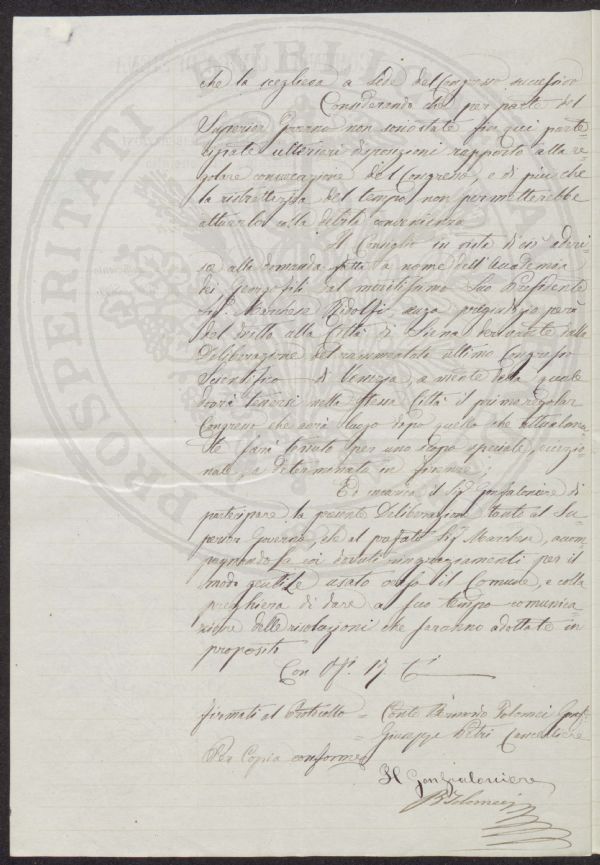 che la scegliesa a sede del Congresso successivo
Considerando che per parte del
Superior Governo non sono state fin qui parte=
cipate ulteriori disposizioni rapporto alla re=
golare convocazione del Congresso, e di più che
la ristrettezza del tempo non permetterebbe
attuarlo colla debita convenienza
Il Consiglio in vista di ciò aderi=
sce alla domanda fatta a nome dell'Accademia
dei Georgofili dal meritissimo Suo Presidente
Sig.r Marchese Ridolfi, senza pregiudizio però
del dritto alla Città di Siena derivante dalla
Deliberazione del rammentato ultimo Congresso
Scientifico di Venezia, a mente della quale
dovrà tenersi nella stessa Città il primo regolar
Congresso che avrà luogo dopo quello che attualmen
te sarà tenuto per uno scopo speciale, eccezio
nale, e determinato in Firenze;
Ed incarica il Sig.r Gonfaloniere di
partecipare la presente Deliberazione tanto al Su=
perior Governo, che al prefato Sig.r Marchese, accom
pagnandola coi dovuti ringraziamenti per il
modo gentile usato verso il Comune, e colla
preghiera di dare a suo tempo comunica=
zione delle risoluzioni che saranno adottate in
proposito
Con V.ti 17. C.i
firmati al Protocollo = Conte Bernardo Tolomei Gonf.
Giuseppe Petri Cancelliere
Per Copia conforme
Il Gonfaloniere
B Tolomei
PROSPERITATI PUBLICAE